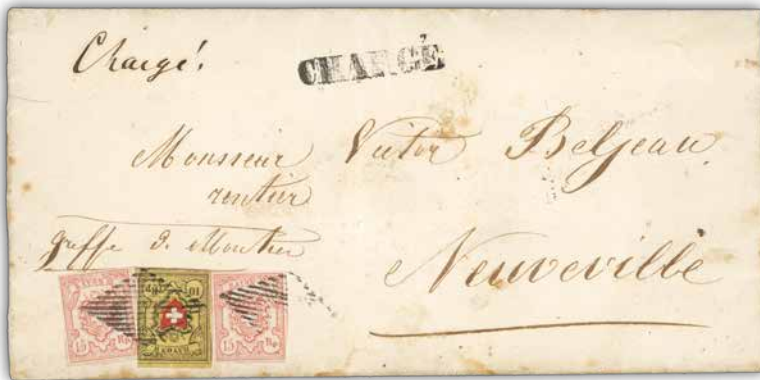 Chargé!
CHARGÉ
Monsieur Victor Beljean
rentier
greffe d. Moutier
Neuveville
15 Rp. 10 15 Rp.